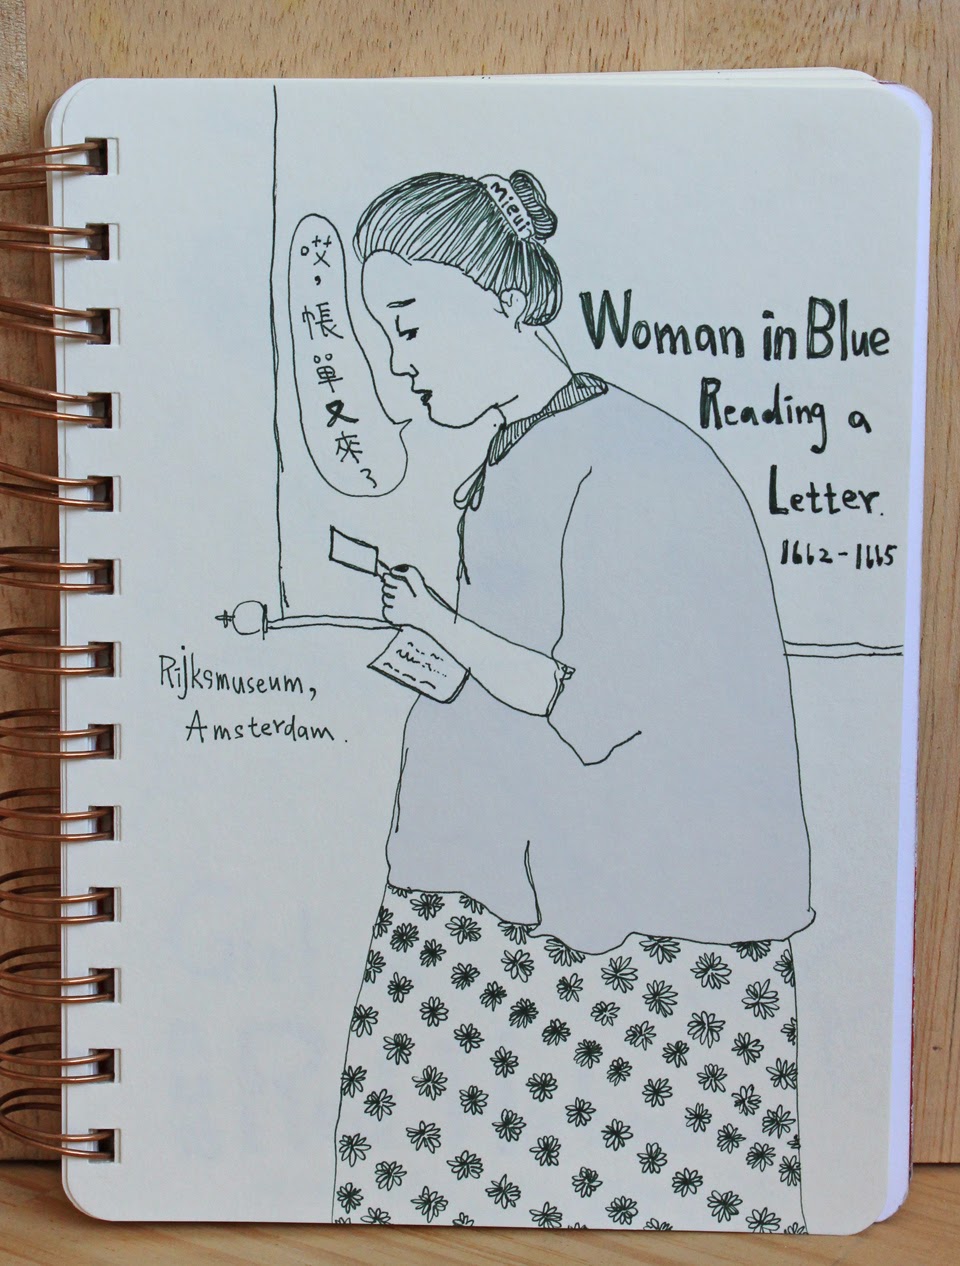 Mieui
哎，帳單又來了
Woman in Blue
Reading a
Letter.
1662-1665
Rijksmuseum,
Amsterdam.